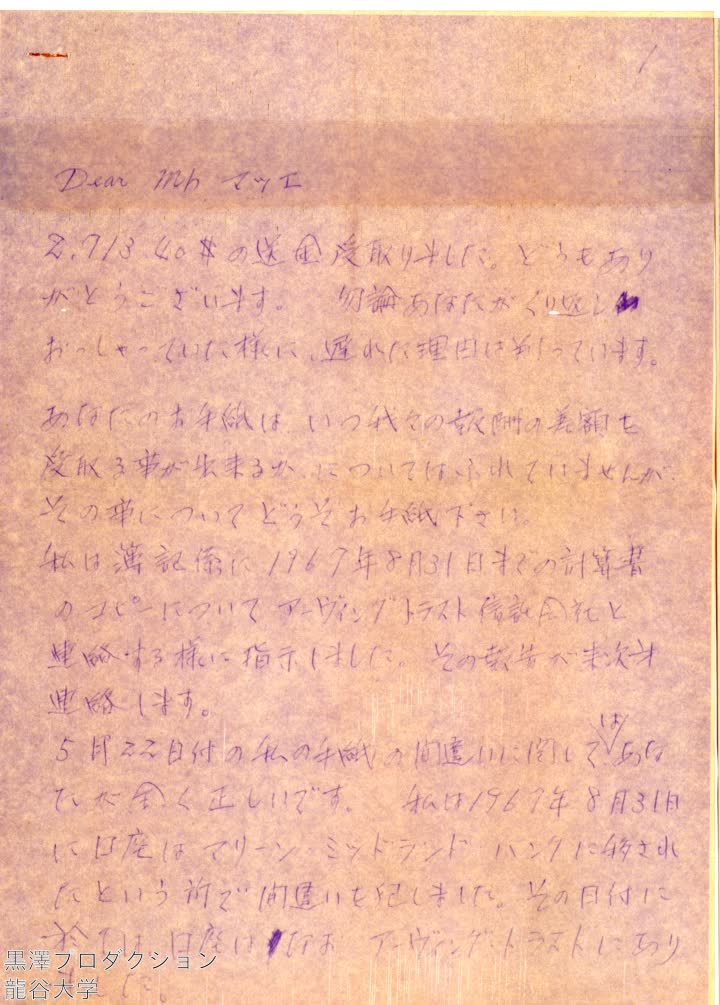 1
Dear Mr マツエ
2,713 40$の送金受取りました。どうもあり
がとうございます。 勿論あなたがくり返し
おっしゃっていた様に、遅れた理由は判っています。
あなたのお手紙は、いつ我々の報酬の差額を
受取る事が出来るか、についてはふれていませんが、
その事についてどうぞお手紙下さい。
私は簿記係に1967年8月31日までの計算書
のコピーについてアーヴィングトラスト信託会社と
連絡する様に指示しました。その報告が来次才
連絡します。
5月22日付の私の手紙の間違いに関しては、あな
たが全く正しいです。 私は1967年8月31日
に口座はマリーン・ミッドランド バンクに移され
たという所で間違いを犯しました。その日付に
於ては口座はなお アーヴィング・トラストにあり
ました。
黒澤プロダクション
龍谷大学